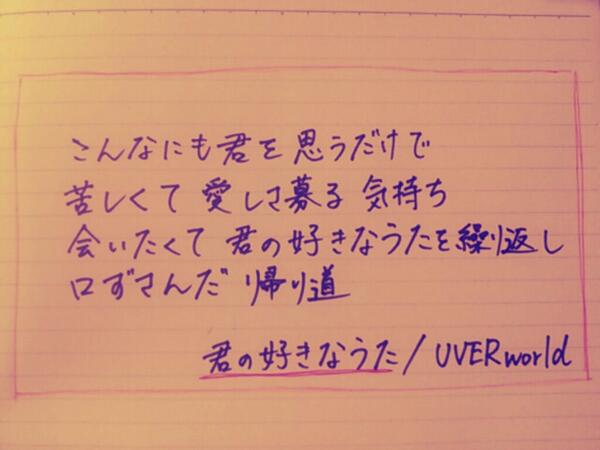 こんなにも君を思うだけで
苦しくて 愛しさ募る 気持ち
会いたくて 君の好きなうたを繰り返し
口ずさんだ 帰り道
君の好きなうた/UVERworld